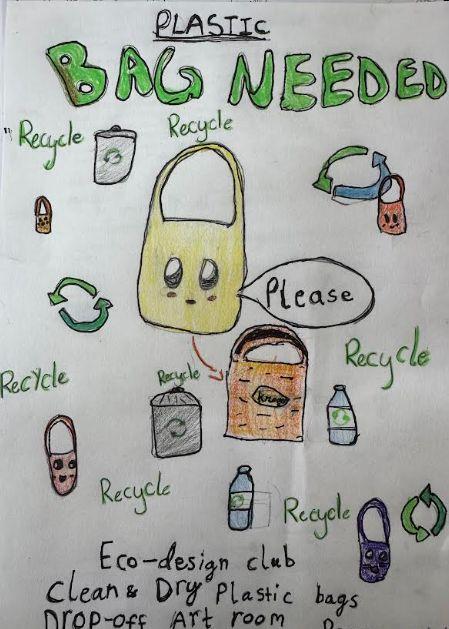 PLASTIC
BAG NEEDED
Recycle
Recycle
Please
Recycle
Recycle
Recycle
Recycle
Recycle
Eco-design club
Clean & Dry Plastic bags
Drop-off Art room